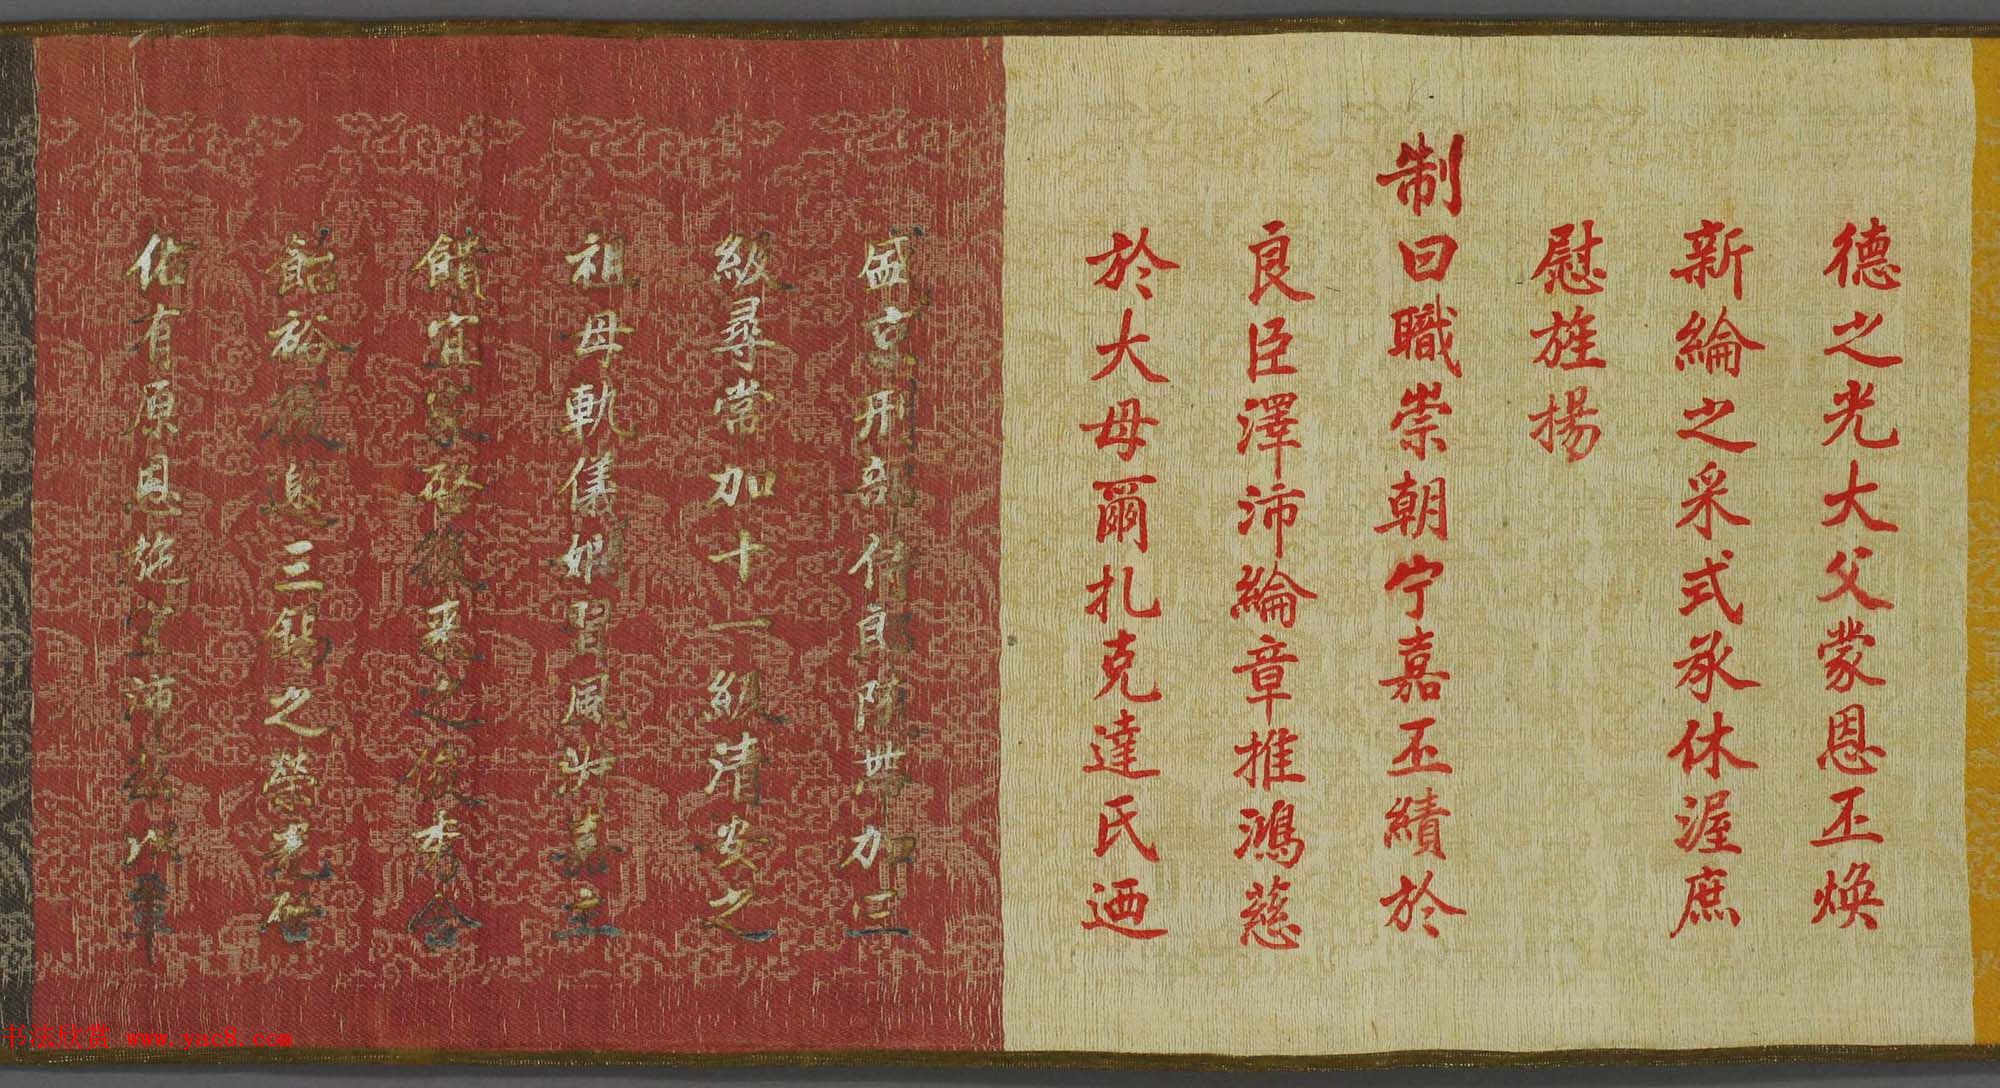 德之光大父蒙恩丕焕
新綸之采式承休渥庶
慰旌揚
制曰職崇朝宁嘉丕績於
良臣澤沛綸章推鴻慈
於大母爾扎克達氏迺
盛京刑部侍郎隨帶加三
級尋常加十一級清安之
祖母軌儀嫺習風災嘉主
饋宜家啓後來之俊秀含
飴裕後邀三錫之榮光啓
佑有原恩施宜沛茲以覃
书法欣赏 www.yac8.com